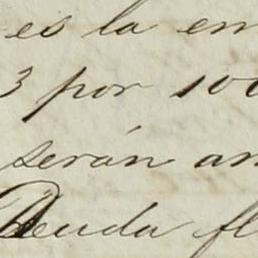 es la en
3 por 100
serán an
Deuda fl